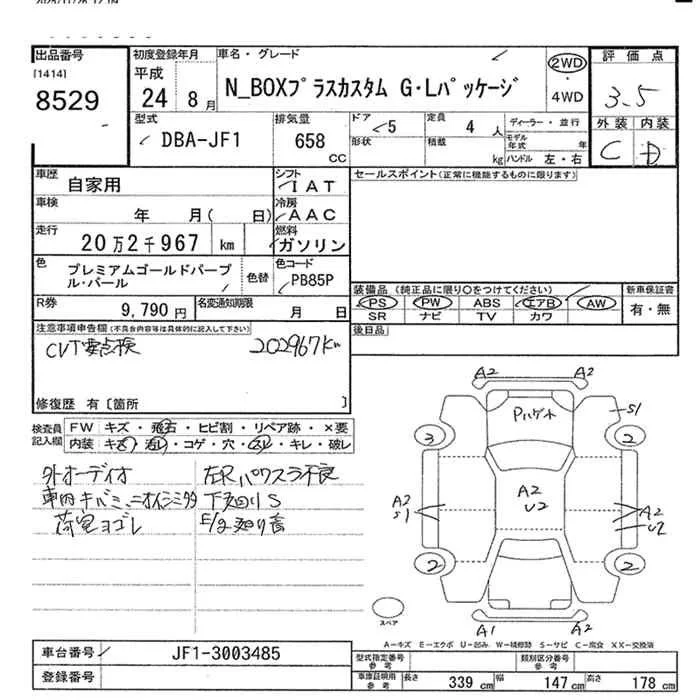 出品番号
[1414]
8529
初度登録年月
平成
24 年 8 月
車名・グレード
N_BOXプラスカスタム G・Lパッケージ
2WD
・
4WD
評価点
3.5
外装 内装
C D
型式
DBA-JF1
排気量
658
CC
ドア
5
定員
4 人
形状
積載
kg
ディーラー・並行
モデル年式 年
ハンドル 左・右
車歴
自家用
シフト
IAT
車検
年 月( 日)
冷房
AAC
走行
20万2千967 km
燃料
ガソリン
色
プレミアムゴールドパープル・パール
色替
色コード
PB85P
R券
9,790円
名変通知期限
月 日
セールスポイント(正常に機能するものに限ります)
装備品 (純正品に限り○をつけてください)
PS PW ABS エアB AW
SR ナビ TV カワ
新車保証書
有・無
後日品
注意事項申告欄(不具合内容等は具体的に記入して下さい)
CVT要点検 202967km
修復歴 有〔箇所 〕
検査員記入欄
FW キズ・飛石・ヒビ割・リペア跡・×要
内装 キズ・汚レ・コゲ・穴・スレ・キレ・破レ
外オーディオ
左Rパワスラ不良
荷室ヨゴレ
下廻りS
A2 A2
Pハゲ小
S1
3 2
A2
S1
A2
U2
A2
U2
2 2
A1 A2
スペア
A-キズ E-エクボ U-凹み W-補修跡 S-サビ C-腐食 XX-交換済
車台番号
JF1-3003485
登録番号
型式指定番号
参考
類別区分番号
参考
車庫証明用
参考
長さ 339 cm 幅 147 cm 高さ 178 cm